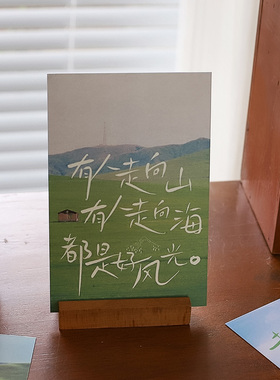 有人走向山
有人走向海
都是好风光。